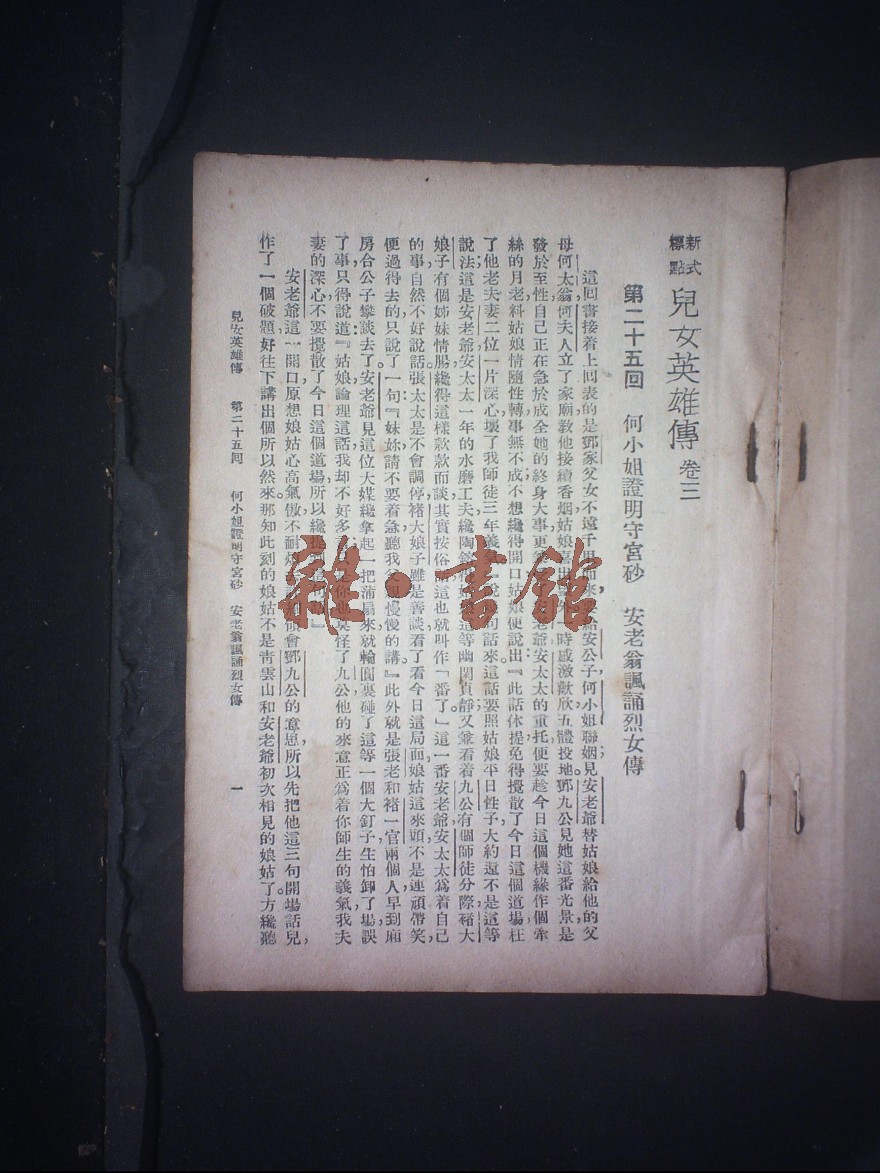 新式標點 兒女英雄傳 卷三
第二十五回 何小姐證明守宮砂 安老翁諷誦烈女傳
這回書接着上回表的是鄧家父女不遠千里而來要給安公子何小姐聯姻見安老爺替姑娘給他的父
母何太翁何夫人立了家廟教他接續香烟姑娘喜出望外一時感激歡欣五體投地鄧九公見她這番光景是
發於至性自己正在急於成全她的終身大事更兼老爺安太太的重托便要趁今日這個機緣作個牽
絲的月老料姑娘情隨性轉事無不成不想纔得開口姑娘便說出『此話休提免得攪散了今日這個道場枉
了他老夫妻二位一片深心壞了我師徒三年義氣』說句話來這話要照姑娘平日性子大約還不是這等
說法這是安老爺安太太一年的水磨工夫纔陶鎔得姑娘這等幽閑貞靜又兼看着九公有個師徒分際褚大
娘子有個姊妹情腸纔得這樣款款而談其實按俗話這也就叫作「番了」這一番安老爺安太太爲着自己
的事自然不好說話張太太是不會調停褚大娘子雖是善談看了看今日這局面娘姑這來頭不是連頑帶笑
便過得去的只說了一句『妹妳請不要着急聽我父親慢慢的講』此外就是張老和褚一官兩個人早到廂
房合公子攀談去了安老爺見這位大媒纔拿起一把蒲扇來就輪圓裏碰了這等一個大釘子生怕卸了場誤
了事只得說道『姑娘論理這話我却不好多你也莫怪了九公他的來意正爲着你師生的義氣我夫
妻的深心不要攪散了今日這個道場所以纔提到這句話』
安老爺這一開口原想娘姑心高氣傲不耐煩領會鄧九公的意思所以先把他這三句開場話兒
作了一個破題好往下講出個所以然來那知此刻的娘姑不是靑雲山和安老爺初次相見的娘姑了方纔聽
兒女英雄傳 第二十五回 何小姐證明守宮砂 安老翁諷誦烈女傳 一
雜·書館